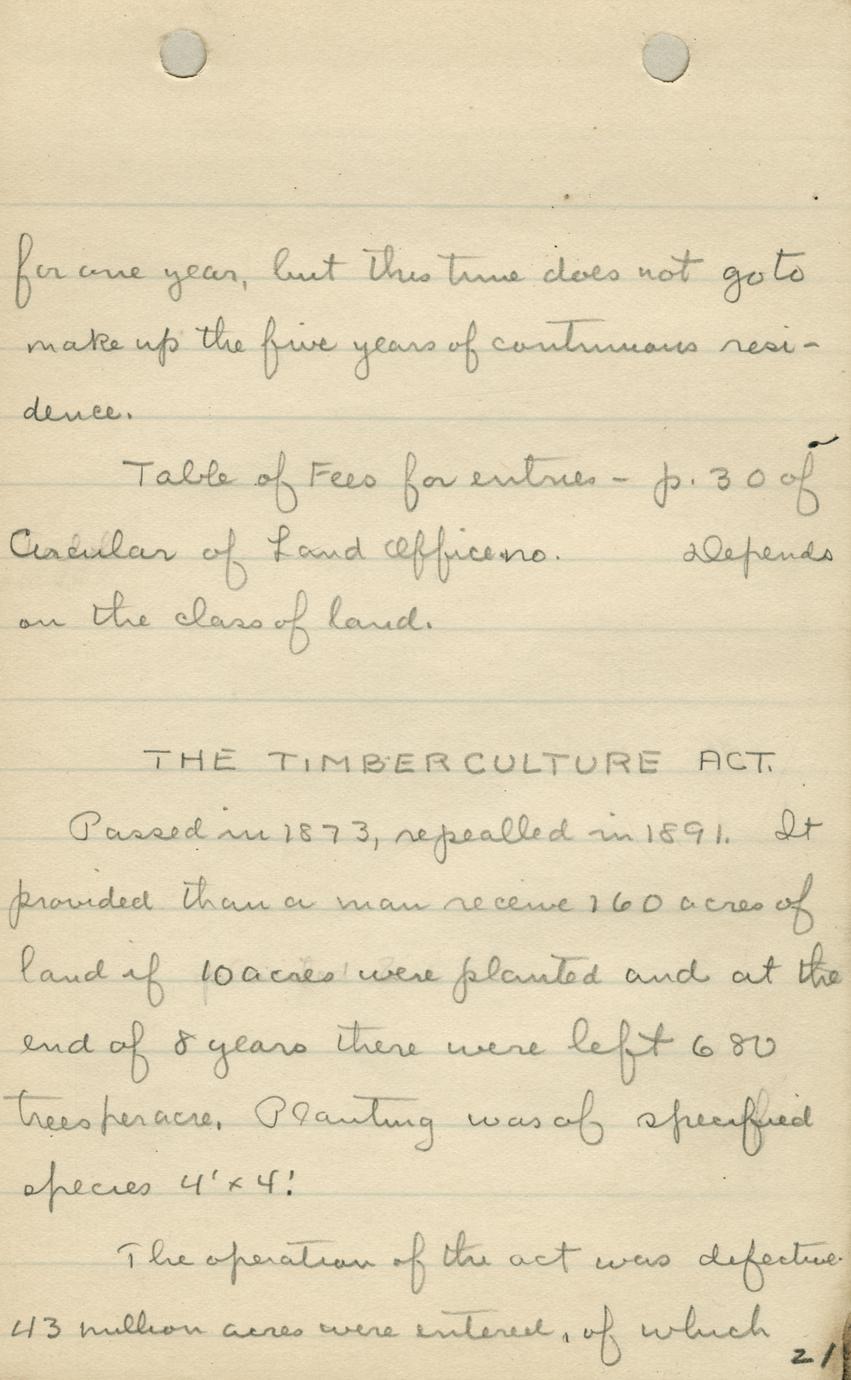 for one year, but this time does not go to
make up the five years of continuous resi-
dence.
Table of Fees for entries - p. 30 of
Circular of Land Office no. Depends
on the class of land.
THE TIMBER CULTURE ACT.
Passed in 1873, repealled in 1891. It
provided than a man receive 160 acres of
land if 10 acres were planted and at the
end of 8 years there were left 680
trees per acre. Planting was of specified
species 4' x 4'.
The operation of the act was defective.
43 million acres were entered, of which
21